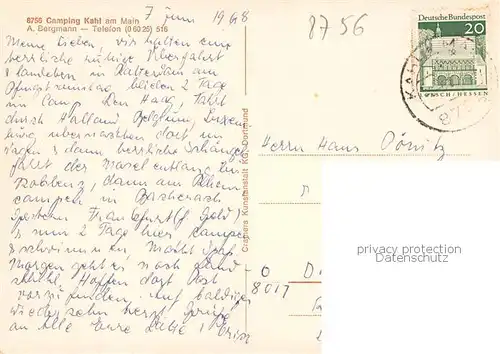 8756 Camping Kahl am Main
A. Bergmann — Telefon (0 60 25) 516
7 Juni 1968
8756
Deutsche Bundespost
20
LORSCH / HESSEN
Meine Lieben, wir hatten eine
herrliche ruhige Überfahrt
& landeten in Rotterdam am
Pfingstmontag, blieben 2 Tage
im Camp. Den Haag, Fahrt
durch Holland Belgien, Luxem
burg, übernachten dort im
Wagen & dann herrliche
fahrt der Mosel entlang bis
Koblenz, dann am Rhein
campen in Bacharach
Gestern Frankfurt (Geld)
& nun 2 Tage hier campen
& schwimmen Macht Spaß
Morgen geht es nach Land
Hoffen dort Post
vorzufinden. Auf baldiges
Wiedersehn herzl. Grüße
an Alle Eure
Crämers Kunstanstalt KG, Dortmund
Herrn Hans Pönitz
8017
privacy protection
Datenschutz